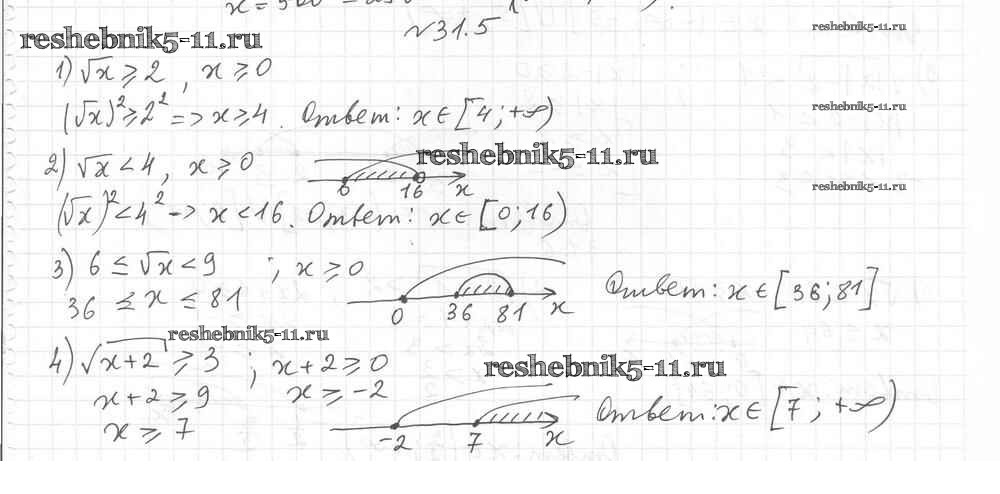 №31.5
reshebnik5-11.ru
reshebnik5-11.ru
1) √x ≥ 2, x ≥ 0
(√x)² ≥ 2² => x ≥ 4. Ответ: x ∈ [4; +∞)
reshebnik5-11.ru
2) √x < 4, x ≥ 0
reshebnik5-11.ru
0 16 x
reshebnik5-11.ru
(√x)² < 4² -> x < 16. Ответ: x ∈ [0; 16)
3) 6 ≤ √x < 9 ; x ≥ 0
36 ≤ x ≤ 81
0 36 81 x
Ответ: x ∈ [36; 81]
reshebnik5-11.ru
4) √x+2 ≥ 3 ; x+2 ≥ 0
reshebnik5-11.ru
x+2 ≥ 9 x ≥ -2
x ≥ 7
-2 7 x
Ответ: x ∈ [7; +∞)